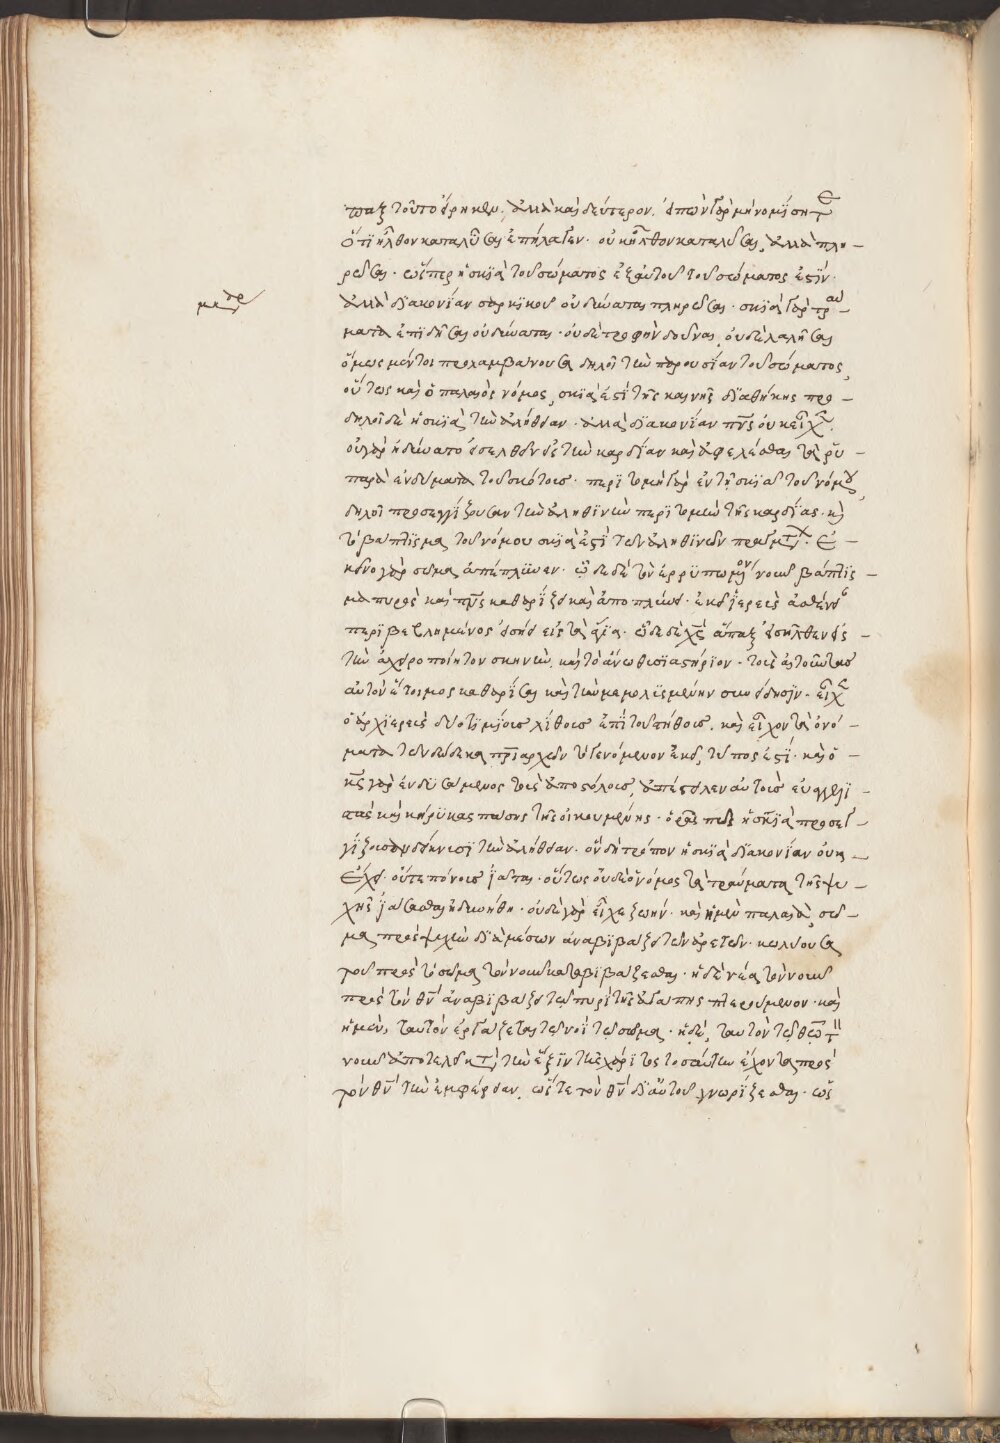 παξ τοῦτο εἴρηκεν, ἀλλὰ καὶ δεύτερον. εἰπὼν γὰρ μὴ νομίσητε
ὅτι ἦλθον καταλῦσαι ἐπήγαγεν. οὐκ ἦλθον καταλῦσαι, ἀλλὰ πλη-
ρῶσαι. ὥσπερ ἡ σκιὰ τοῦ σώματος ἐξ αὐτοῦ τοῦ σώματος ἐστίν.
ἀλλὰ διακονίαν σαρκικοῦ οὐ δύναται πληρῶσαι. σκιὰ γὰρ τραύ-
ματα ἐπιδῆσαι οὐ δύναται. οὐδὲ τροφὴν δοῦναι, οὐδὲ λαλῆσαι
ὅμως μέντοι προλαμβάνουσα δηλοῖ τὴν παρουσίαν τοῦ σώματος,
οὕτως καὶ ὁ παλαιὸς νόμος, σκιὰ ἐστὶ τῆς καινῆς διαθήκης προ-
δηλοῖ δὲ ἡ σκιὰ τὴν ἀλήθειαν. ἀλλὰ διακονίαν πνς οὐκ εἶχε.
οὐ γὰρ ἠδύνατο εἰσελθεῖν εἰς τὴν καρδίαν καὶ ἀφελέσθαι τὰ ῥυ-
παρὰ ἐνδύματα τοῦ σκότους. περιτομὴ γὰρ ἐν τῇ σκιᾷ τοῦ νόμου,
δηλοῖ προσεγγίζουσαν τὴν ἀληθινὴν περιτομὴν τῆς καρδίας. καὶ
τὸ βάπτισμα τοῦ νόμου σκιὰ ἐστὶ τῶν ἀληθινῶν πραγμάτων. ἐ-
κεῖνο γὰρ σῶμα ἀπέπλυνεν. ὧδε δὲ τὸν ἐρρυπωμένον νοῦν βάπτισ-
μα πυρὸς καὶ πνς καθαρίζει καὶ ἀποπλύνει. ἐκεῖ ἱερεὺς ἀσθένειαν
περιβεβλημένος εἰσῄει εἰς τὰ ἅγια. ὧδε δὲ χς ἅπαξ εἰσῆλθεν εἰς
τὴν ἀχειροποίητον σκηνὴν, καὶ τὸ ἄνω θυσιαστήριον. τοὺς αἰτοῦντας
αὐτὸν ἕτοιμος καθαρίσαι καὶ τὴν μεμολυσμένην συνείδησιν. εἶχε
ὁ ἀρχιερεὺς δύο τιμίους λίθους ἐπὶ τοῦ στήθους. καὶ εἶχον τὰ ὀνό-
ματα τῶν δώδεκα πριαρχῶν τὸ γενόμενον ἐκεῖ, τύπος ἐστί. καὶ ὁ
κς γὰρ ἐνδυσάμενος τοὺς ἀποστόλους, ἀπέστειλεν αὐτοὺς εὐαγγελι-
στὰς καὶ κήρυκας πάσης τῆς οἰκουμένης. ὁρᾷς πῶς ἡ σκιὰ προσεγ-
γίζουσα δείκνυσι τὴν ἀλήθειαν. ὃν δὴ τρόπον ἡ σκιὰ διακονίαν οὐκ
ἔχει. οὔτε πόνους ἰᾶται. οὕτως οὐδὲ ὁ νόμος τὰ τραύματα τῆς ψυ-
χῆς ἰάσασθαι ἠδυνήθη. οὐδὲ γὰρ εἶχε ζωήν. καὶ ἡ μὲν παλαιὰ, σῶ-
μα πρὸς ψυχὴν διὰ μέσων ἀναβιβάζει τῶν ἀρετῶν. κωλύουσα
τοῦ πρὸς τὸ σῶμα τὸν νοῦν καταβιβάζεσθαι. ἡ δὲ νέα τὸν νοῦν
πρὸς τὸν θν ἀναβιβάζει τῷ πυρὶ τῆς ἀγάπης πτερούμενον. καὶ
ἡ μὲν, ταυτὸν ἐργάζεται τῷ νοῒ τὸ σῶμα. ἡ δὲ, ταυτὸν τῷ θεῷ τὸν
νοῦν ἀποτελεῖ τὴν ἕξιν τῆς χάριτος τοσαύτην ἔχοντα πρὸς
τὸν θν τὴν ἐμφέρειαν. ὥστε τὸν θν δι' αὐτοῦ γνωρίζεσθαι. ὡς